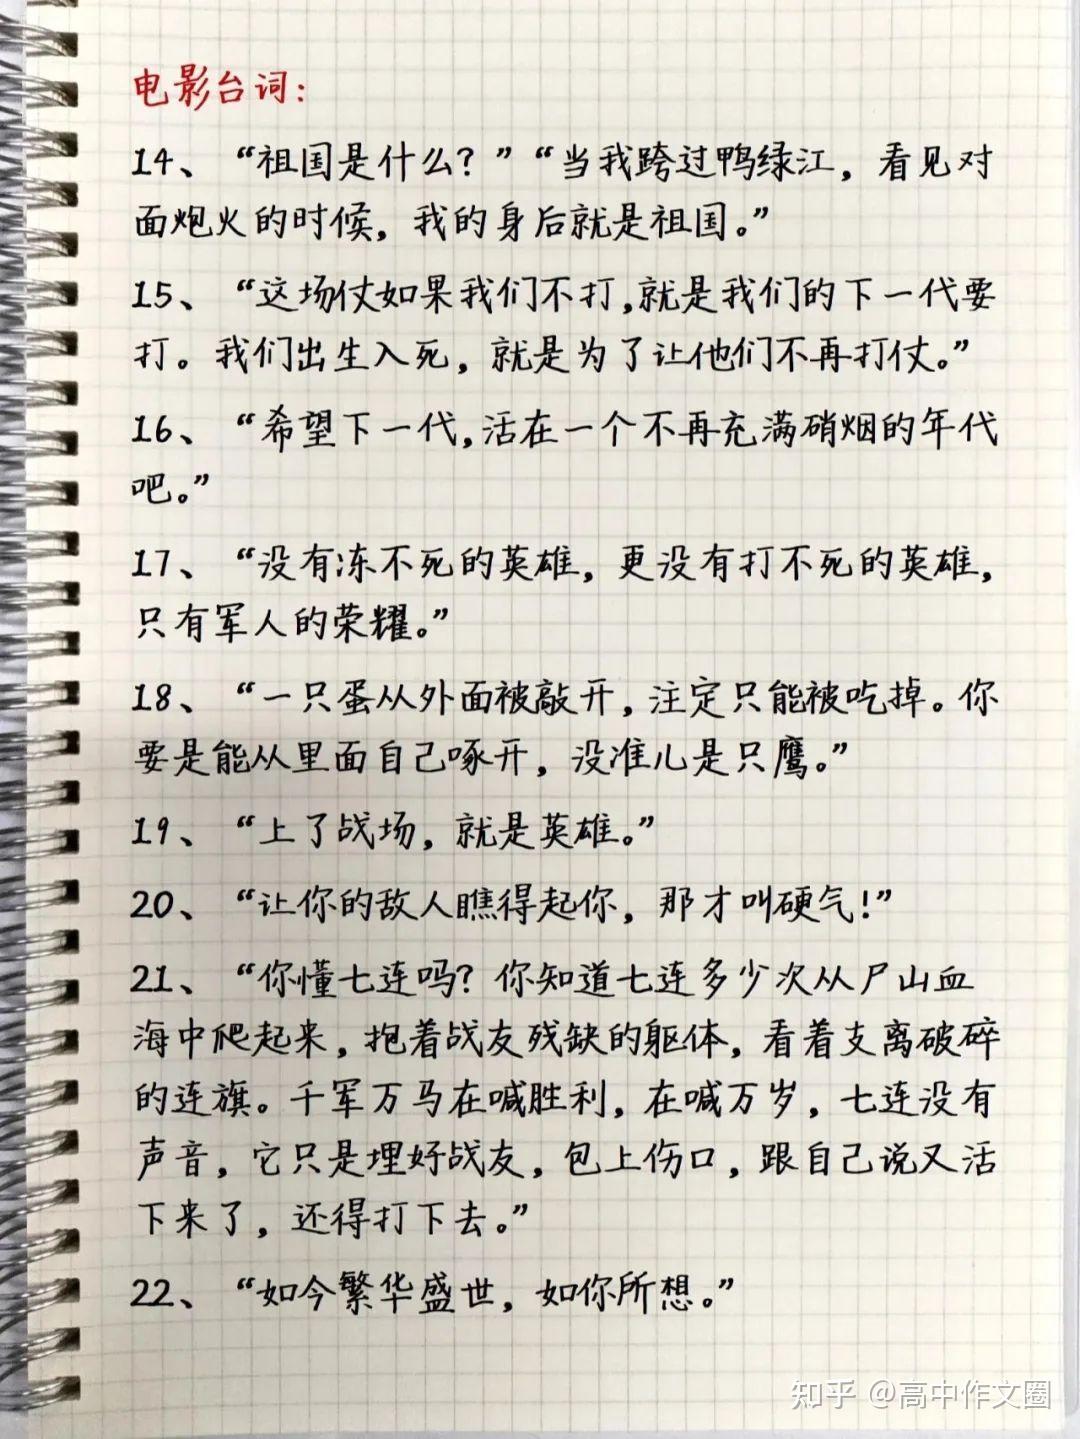 电影台词：
14、“祖国是什么？”“当我跨过鸭绿江，看见对
面炮火的时候，我的身后就是祖国。”
15、“这场仗如果我们不打,就是我们的下一代要
打。我们出生入死，就是为了让他们不再打仗。”
16、“希望下一代,活在一个不再充满硝烟的年代
吧。”
17、“没有冻不死的英雄，更没有打不死的英雄，
只有军人的荣耀。”
18、“一只蛋从外面被敲开，注定只能被吃掉。你
要是能从里面自己啄开，没准儿是只鹰。”
19、“上了战场，就是英雄。”
20、“让你的敌人瞧得起你，那才叫硬气！”
21、“你懂七连吗？你知道七连多少次从尸山血
海中爬起来，抱着战友残缺的躯体，看着支离破碎
的连旗。千军万马在喊胜利，在喊万岁，七连没有
声音，它只是埋好战友，包上伤口，跟自己说又活
下来了，还得打下去。”
22、“如今繁华盛世，如你所想。”
知乎 @高中作文圈